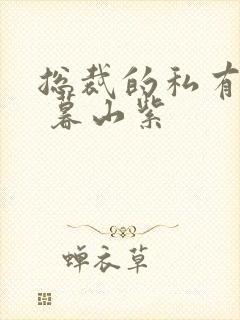 总裁的私有
暮山紫
蝉衣草